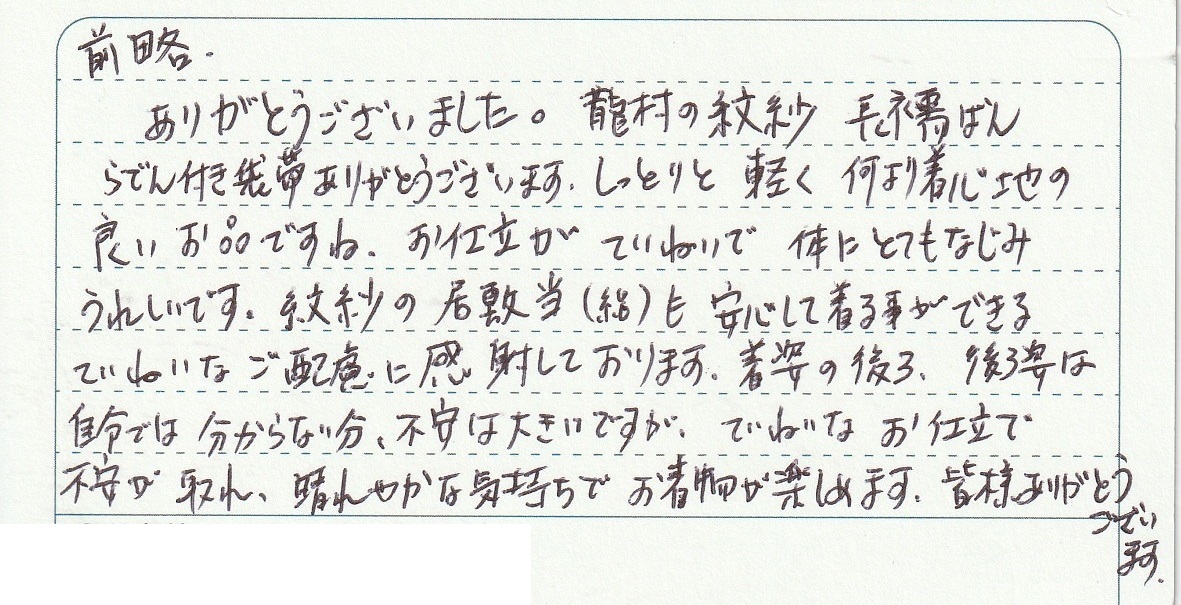 前略.
ありがとうございました。龍村の紋紗 長襦ばん
らでん付き袋帯ありがとうございます. しっとりと 軽く 何より着心地の
良い お品ですね. お仕立が ていねいで 体にとてもなじみ
うれしいです. 紋紗の 居敷当(絽)も 安心して着る事ができる
ていねいな ご配慮に 感射しております. 着姿の後ろ、後ろ姿は
自分では 分からない分、不安は大きいですが、ていねいな お仕立で
不安が 取れ、晴れやかな気持ちで お着物が楽しめます. 皆様ありがとう
ござい
ます.